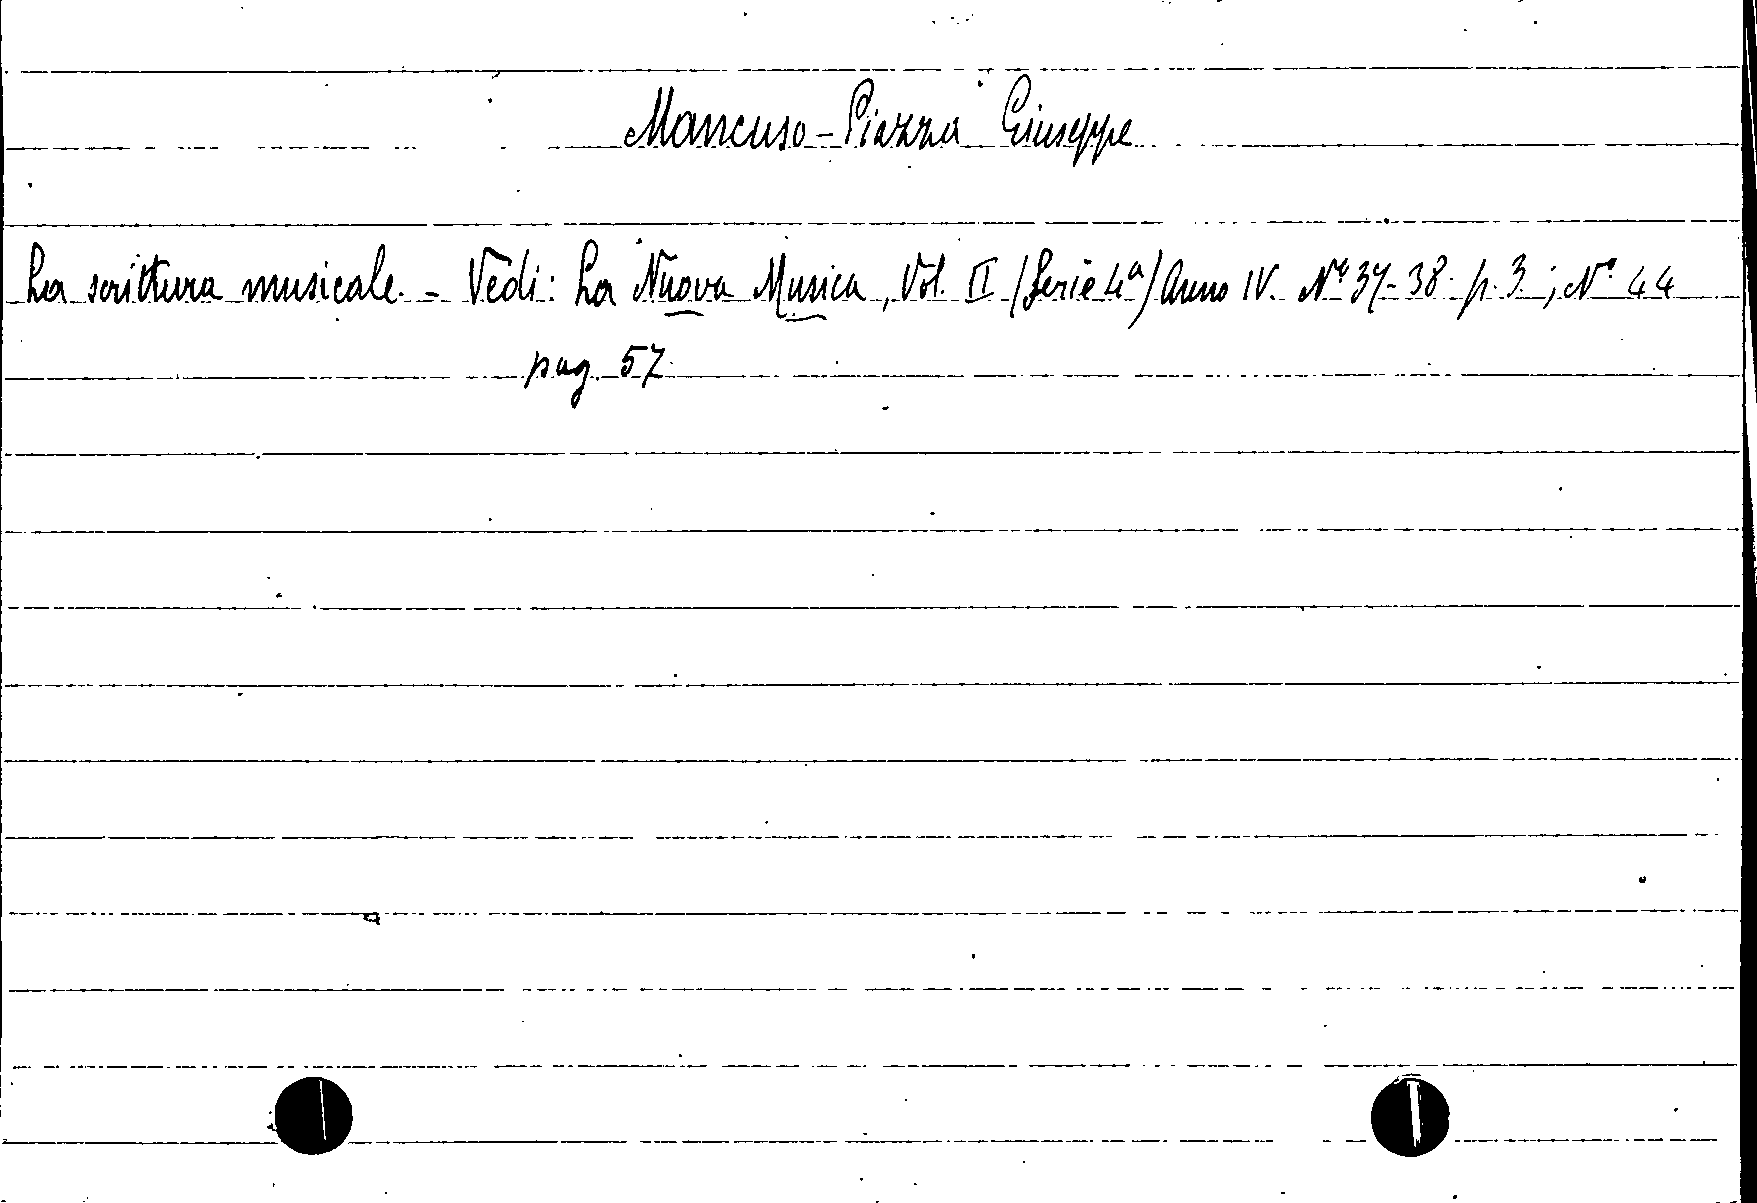 Mancuso-Piazza Giuseppe
La scrittura musicale. - Vedi: La Nuova Musica, Vol. II (Serie 4ª) Anno IV. Nº 37-38 p. 3; Nº 44
pag. 57